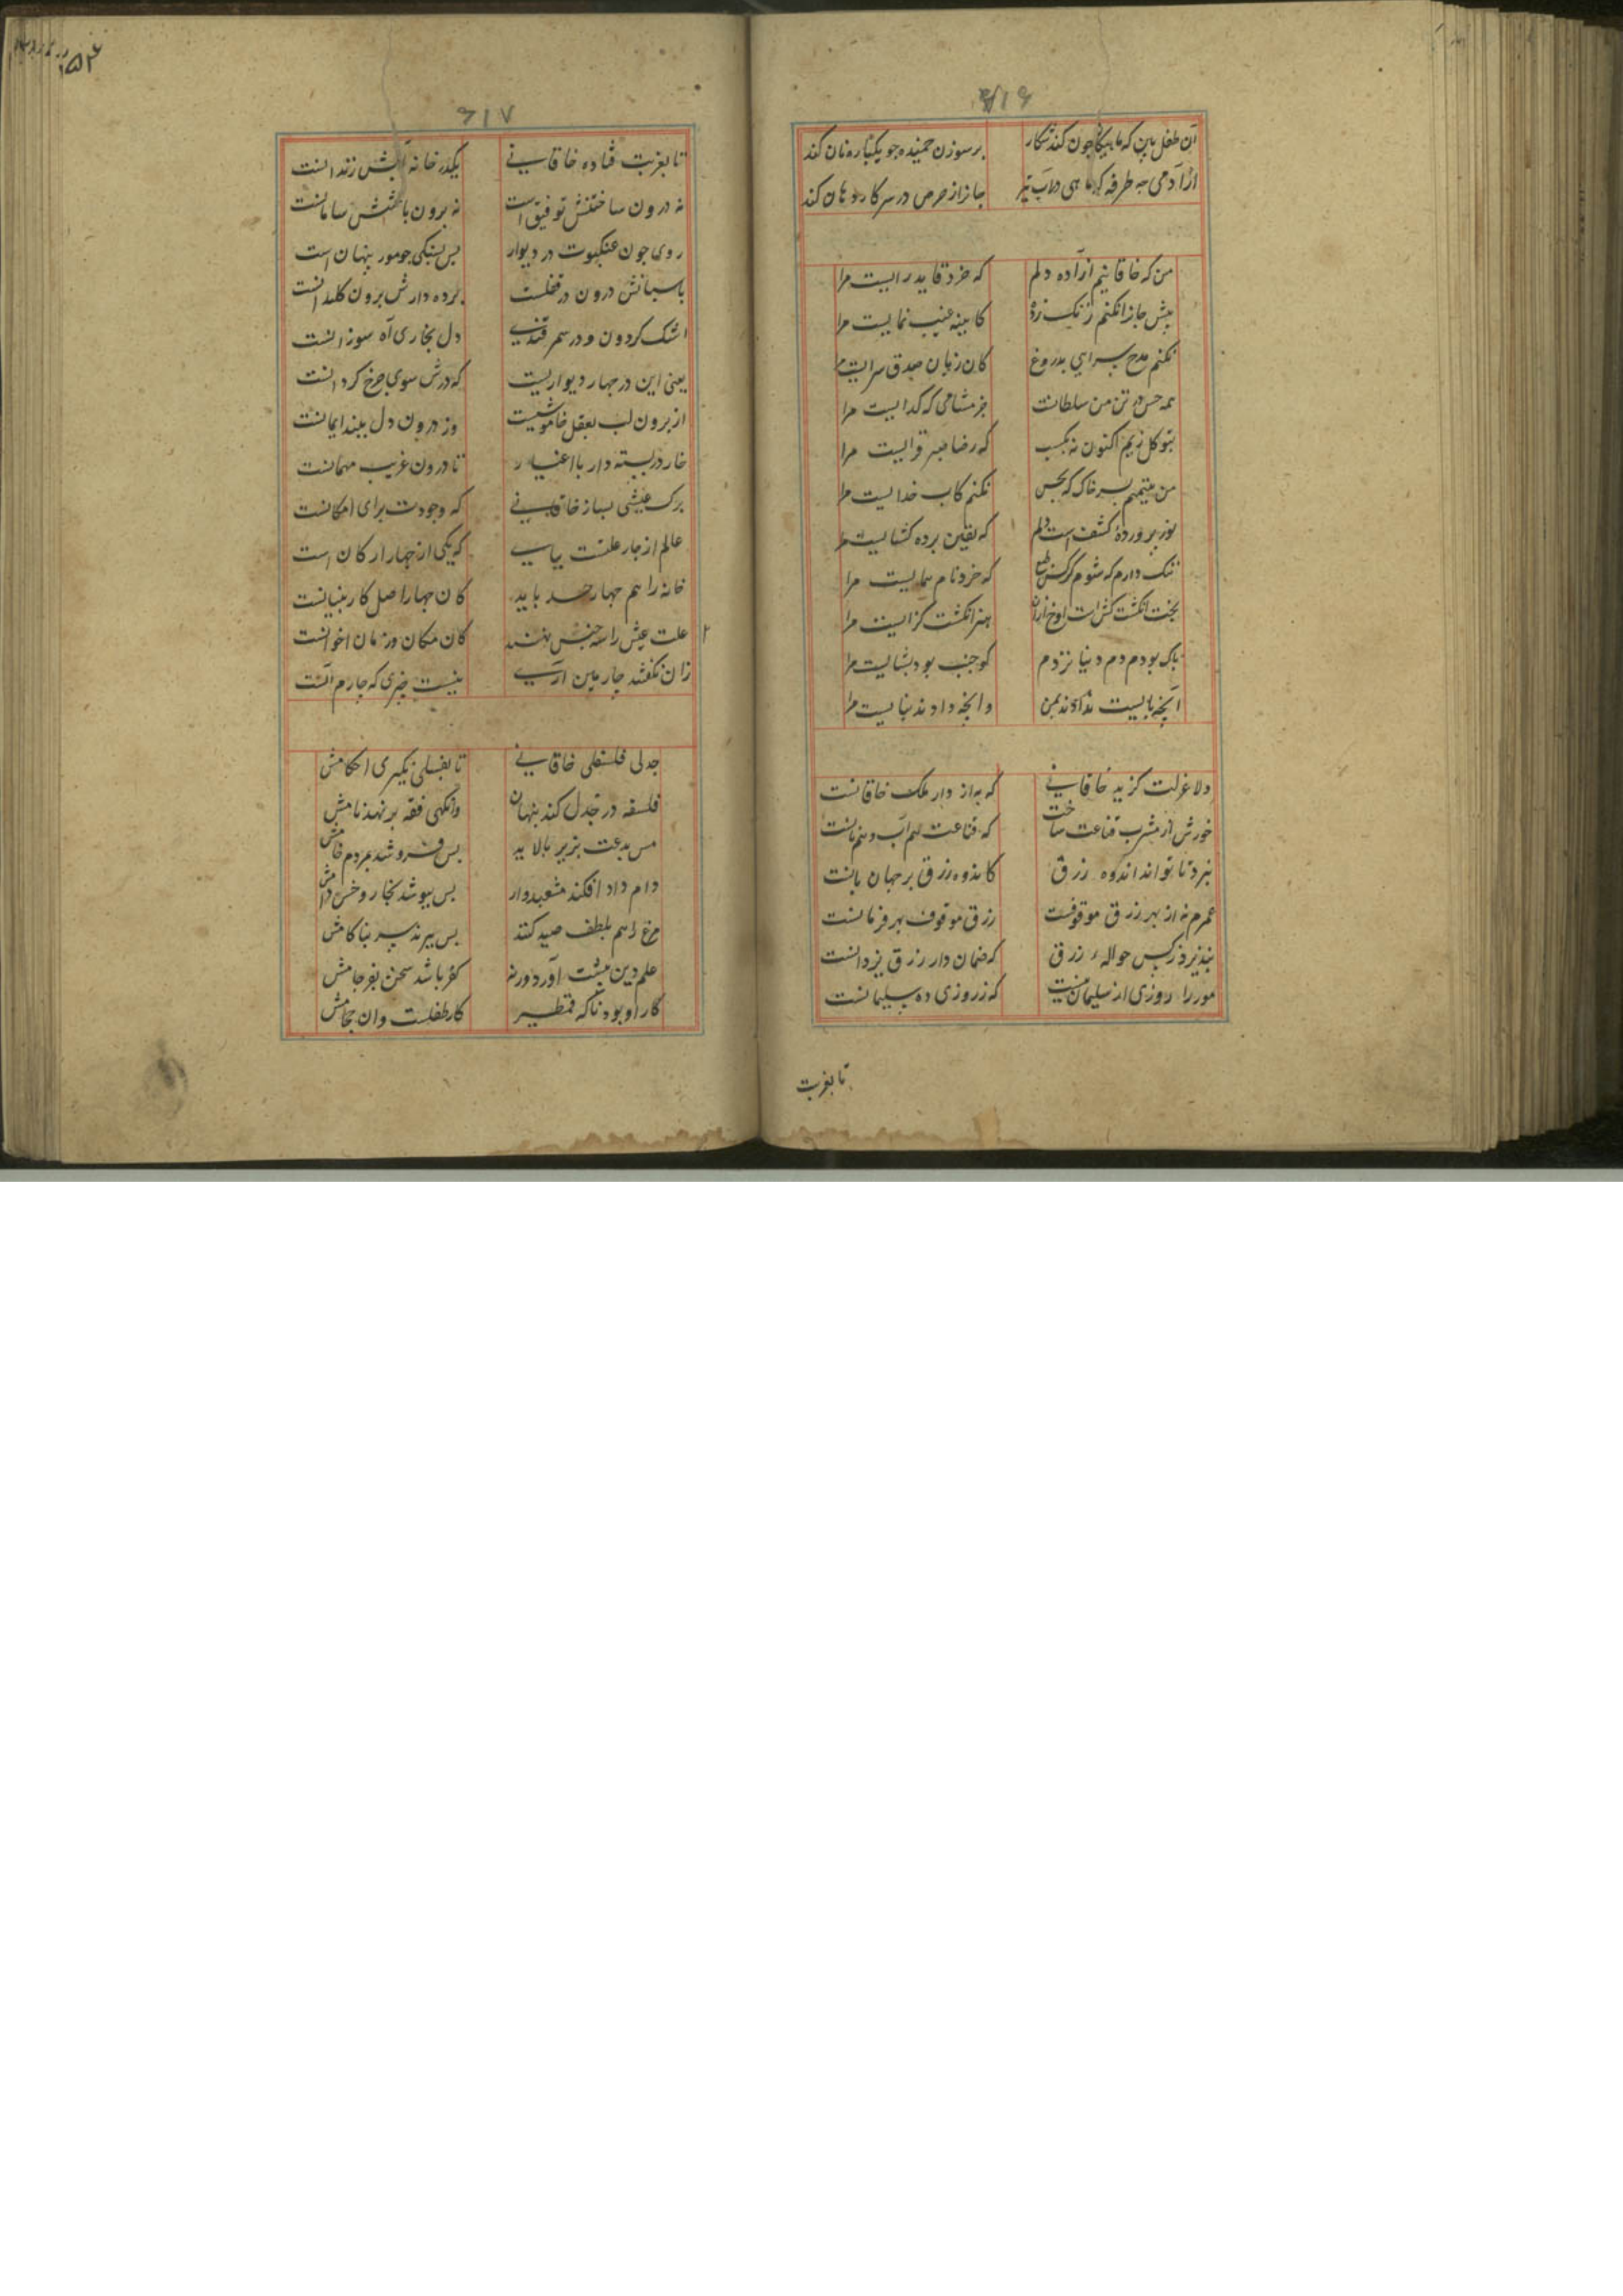 ۶۱۶
آن طفل بین که ماهیکان چون کند شکار
بر سوزن خمیده چو یکپاره نان کند
از آدمی چه طرفه که ماهی در آب نیز
جانرا ز حرص در سر کار دهان کند
من که خاقانیم آزاده دلم
که خرد قاید رایست مرا
پیش جان را نکنم زنگ زده
کاینه غیب نمایست مرا
نکنم مدح سرایی بدروغ
کان زبان صدق سرایست مرا
همه حس در تن من سلطانست
جز مشامی که گدایست مرا
بتوکل زیم اکنون نه بکسب
که رضا صبر فزایست مرا
من تیمم بسر خاک نجس
نکنم کاب خدایست مرا
نوز پرورده کشفست دلم
که یقین پرده کشایست مرا
ننک دارم که شوم کرکس طبع
که خرد نام همایست مرا
بخت انکشت کش است اوخ ازان
هنر انکشت کزایست مرا
پاک بودم دم دنیا نزدم
کو جنب بود بشایست مرا
آنچه بایست ندادند بمن
وانچه دادند نبایست مرا
دلا عزلت کزید خاقانی
که به از دار ملک خاقانست
خورش از مشرب قناعت ساخت
که قناعت هم آب و هم نانست
نبرد تا تواند اندوه رزق
کاندوه رزق بر جهان بانست
عمرم نه از بهر رزق موقوفست
رزق موقوف بهر فرمانست
نپذیرد ز کس حواله رزق
که ضمان دار رزق یزدانست
مور را روزی از سلیمان نیست
که ز روزی ده سلیمانست
تا بغربت
۱۵۴
۶۱۷
تا بغربت فتاده خاقانی
یکدر خانه آتش زندانست
نه درون ساختنش توفیق است
نه برون باختنش سامانست
روی چون عنکبوت در دیوار
پس بستنکی چو مور پنهان است
پاسبانش درون در قفلست
پرده دارش برون کلیدانست
اشک کردون و در سمرقندی
دل بخاری آه سوزانست
یعنی این در چهار دیواریست
که درش سوی چرخ کردانست
از برون لب بقفل خاموشیست
وز درون دل ببند ایمانست
خار در بسته دار با اغیار
تا درون غریب مهمانست
برک عیشی بساز خاقانی
که وجودت برای امکانست
عالم از چار علتست بپای
که یکی از چهار ارکان است
خانه را هم چهار حد باید
کان چهار اصل کار بنیانست
علت عیش را سه جنس نهند
کان مکان و زمان اخوانست
زان نکفتند چارمین آری
نیست چیزی که چارم آنست
جدلی فلسفی خاقانی
تا بفلسی نکیری احکامش
فلسفه در جدل کند پنهان
وانکهی فقه بر نهد نامش
مس بدعت بزیر بالاید
پس فروشد بمردم خامش
دام داد افکند مشعبدوار
پس بپوشد بخار و خس دامش
مرغ را هم بلطف صید کنند
پس ببرند سر بناکامش
علم دین پیشت آورد ورنه
کفر باشد سخن بفرجامش
کار او بود تا که قمطیر
کار طفلست وان حجامش